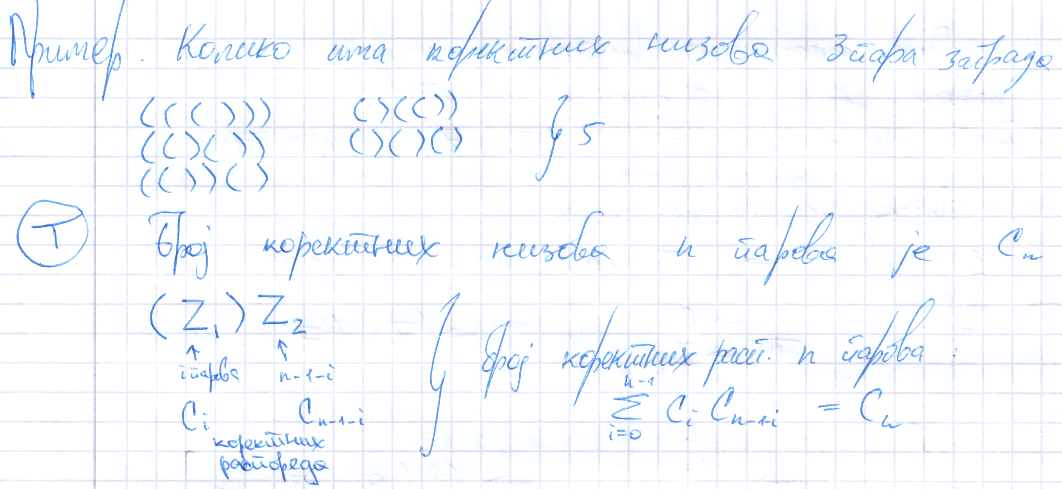 Пример. Колико има коректних низова 3 пара заграда
((())) ()(())
(()()) ()()() } 5
(())()
Т Број коректних низова n парова је Cₙ
(Z₁) Z₂
↑ ↑
i парова n-1-i
Cᵢ Cₙ₋₁₋ᵢ
коректних
распореда
} број коректних расп. n парова:
n-1
∑ Cᵢ Cₙ₋₁₋ᵢ = Cₙ
i=0